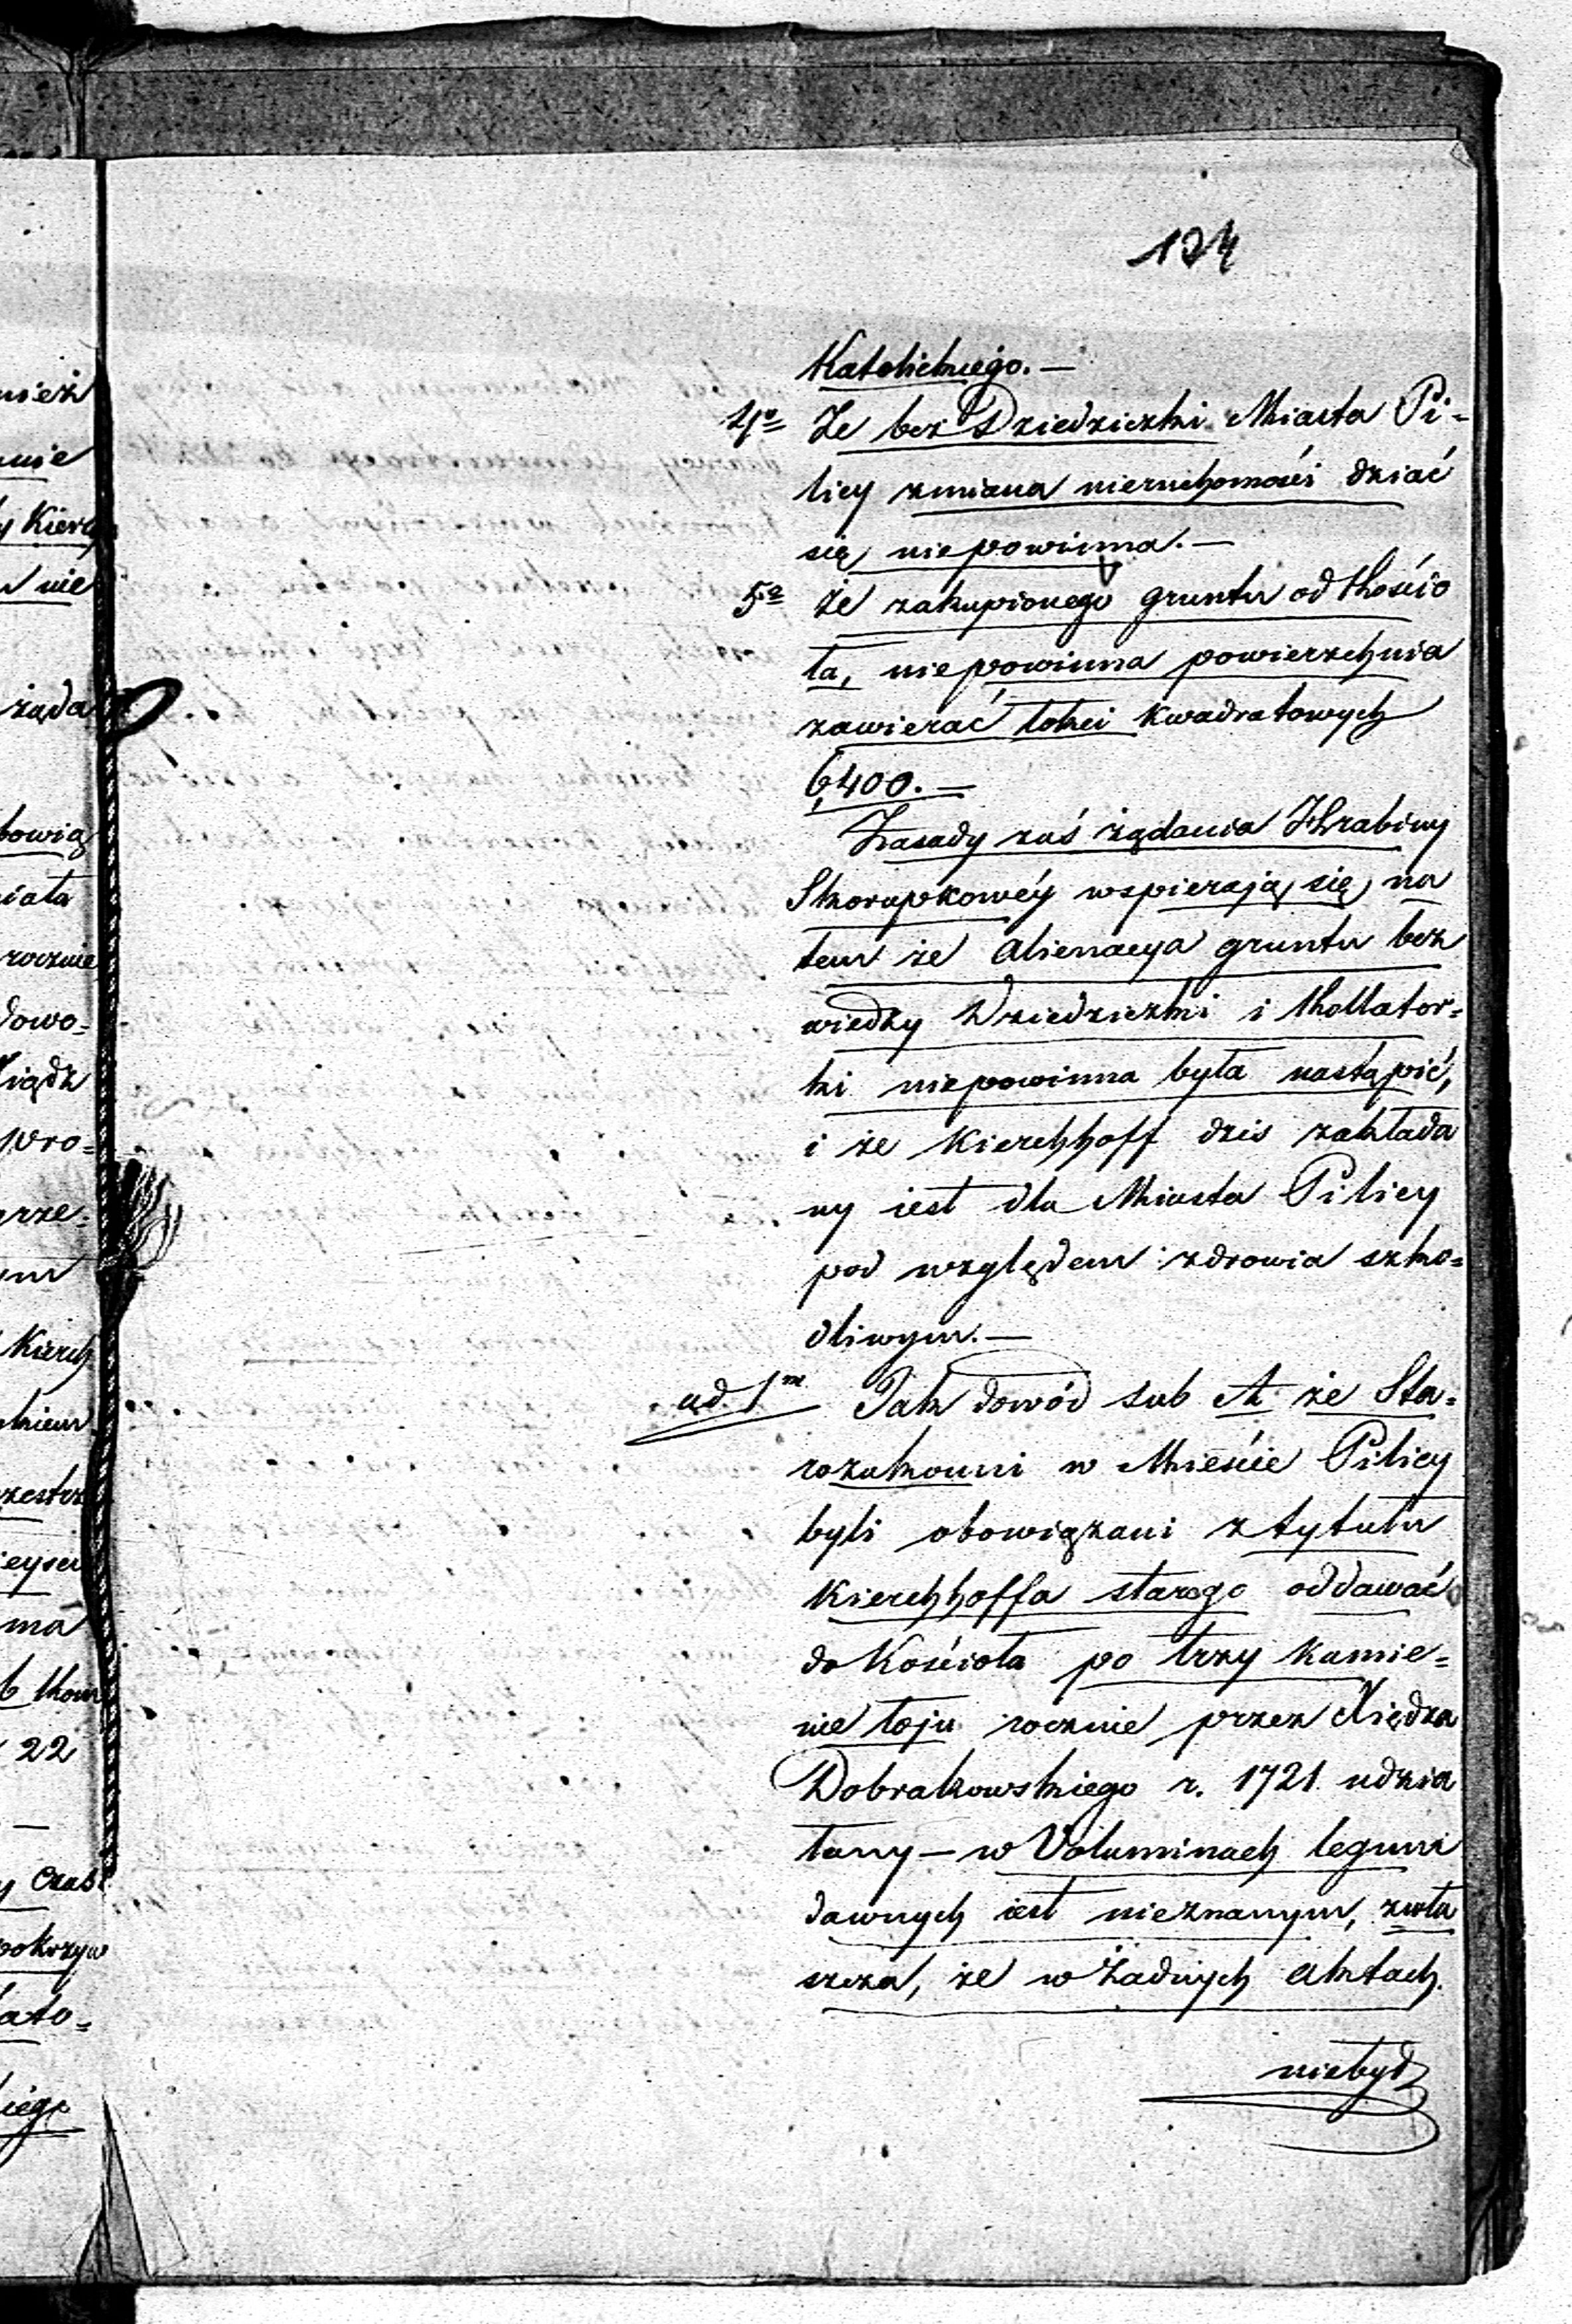 124
Katolickiego. —
4º Że bez Dziedziczki Miasta Pi=
licy zmiana nieruchomości dziać
się niepowinna. —
5º że zakupionego gruntu od Kościo
ła, niepowinna powierzchnia
zawierać łokci kwadratowych
6,400. —
Zasady zaś żądania Hrabiny
Skorupkowéy wspierają się na
tem że alienacya gruntu bez
wiedzy Dziedziczki i Kollator=
ki niepowinna była nastąpić,
i że Kierchhoff dzis zakłada
ny iest dla Miasta Pilicy
pod względem zdrowia szko=
dliwym. —
ad 1m Jak dowód sub A że Sta=
rozakonni w Mieście Pilicy
byli obowiązani z tytułu
Kierchhoffa starego oddawać
do Kościoła po trzy kamie=
nie łoju rocznie przez Xiędza
Dobrakowskiego r. 1721 udzia
łany — w Voluminach legum
dawnych iest nieznanym, zwła
szcza, że w Żadnych aktach
niebył
nież
nie
Kierch
nie
żąda
bowią
miała
rocznie
dowo=
Xiądz
pro=
prze=
Kierch
22
czas
pokrzyw
lato=
kiego